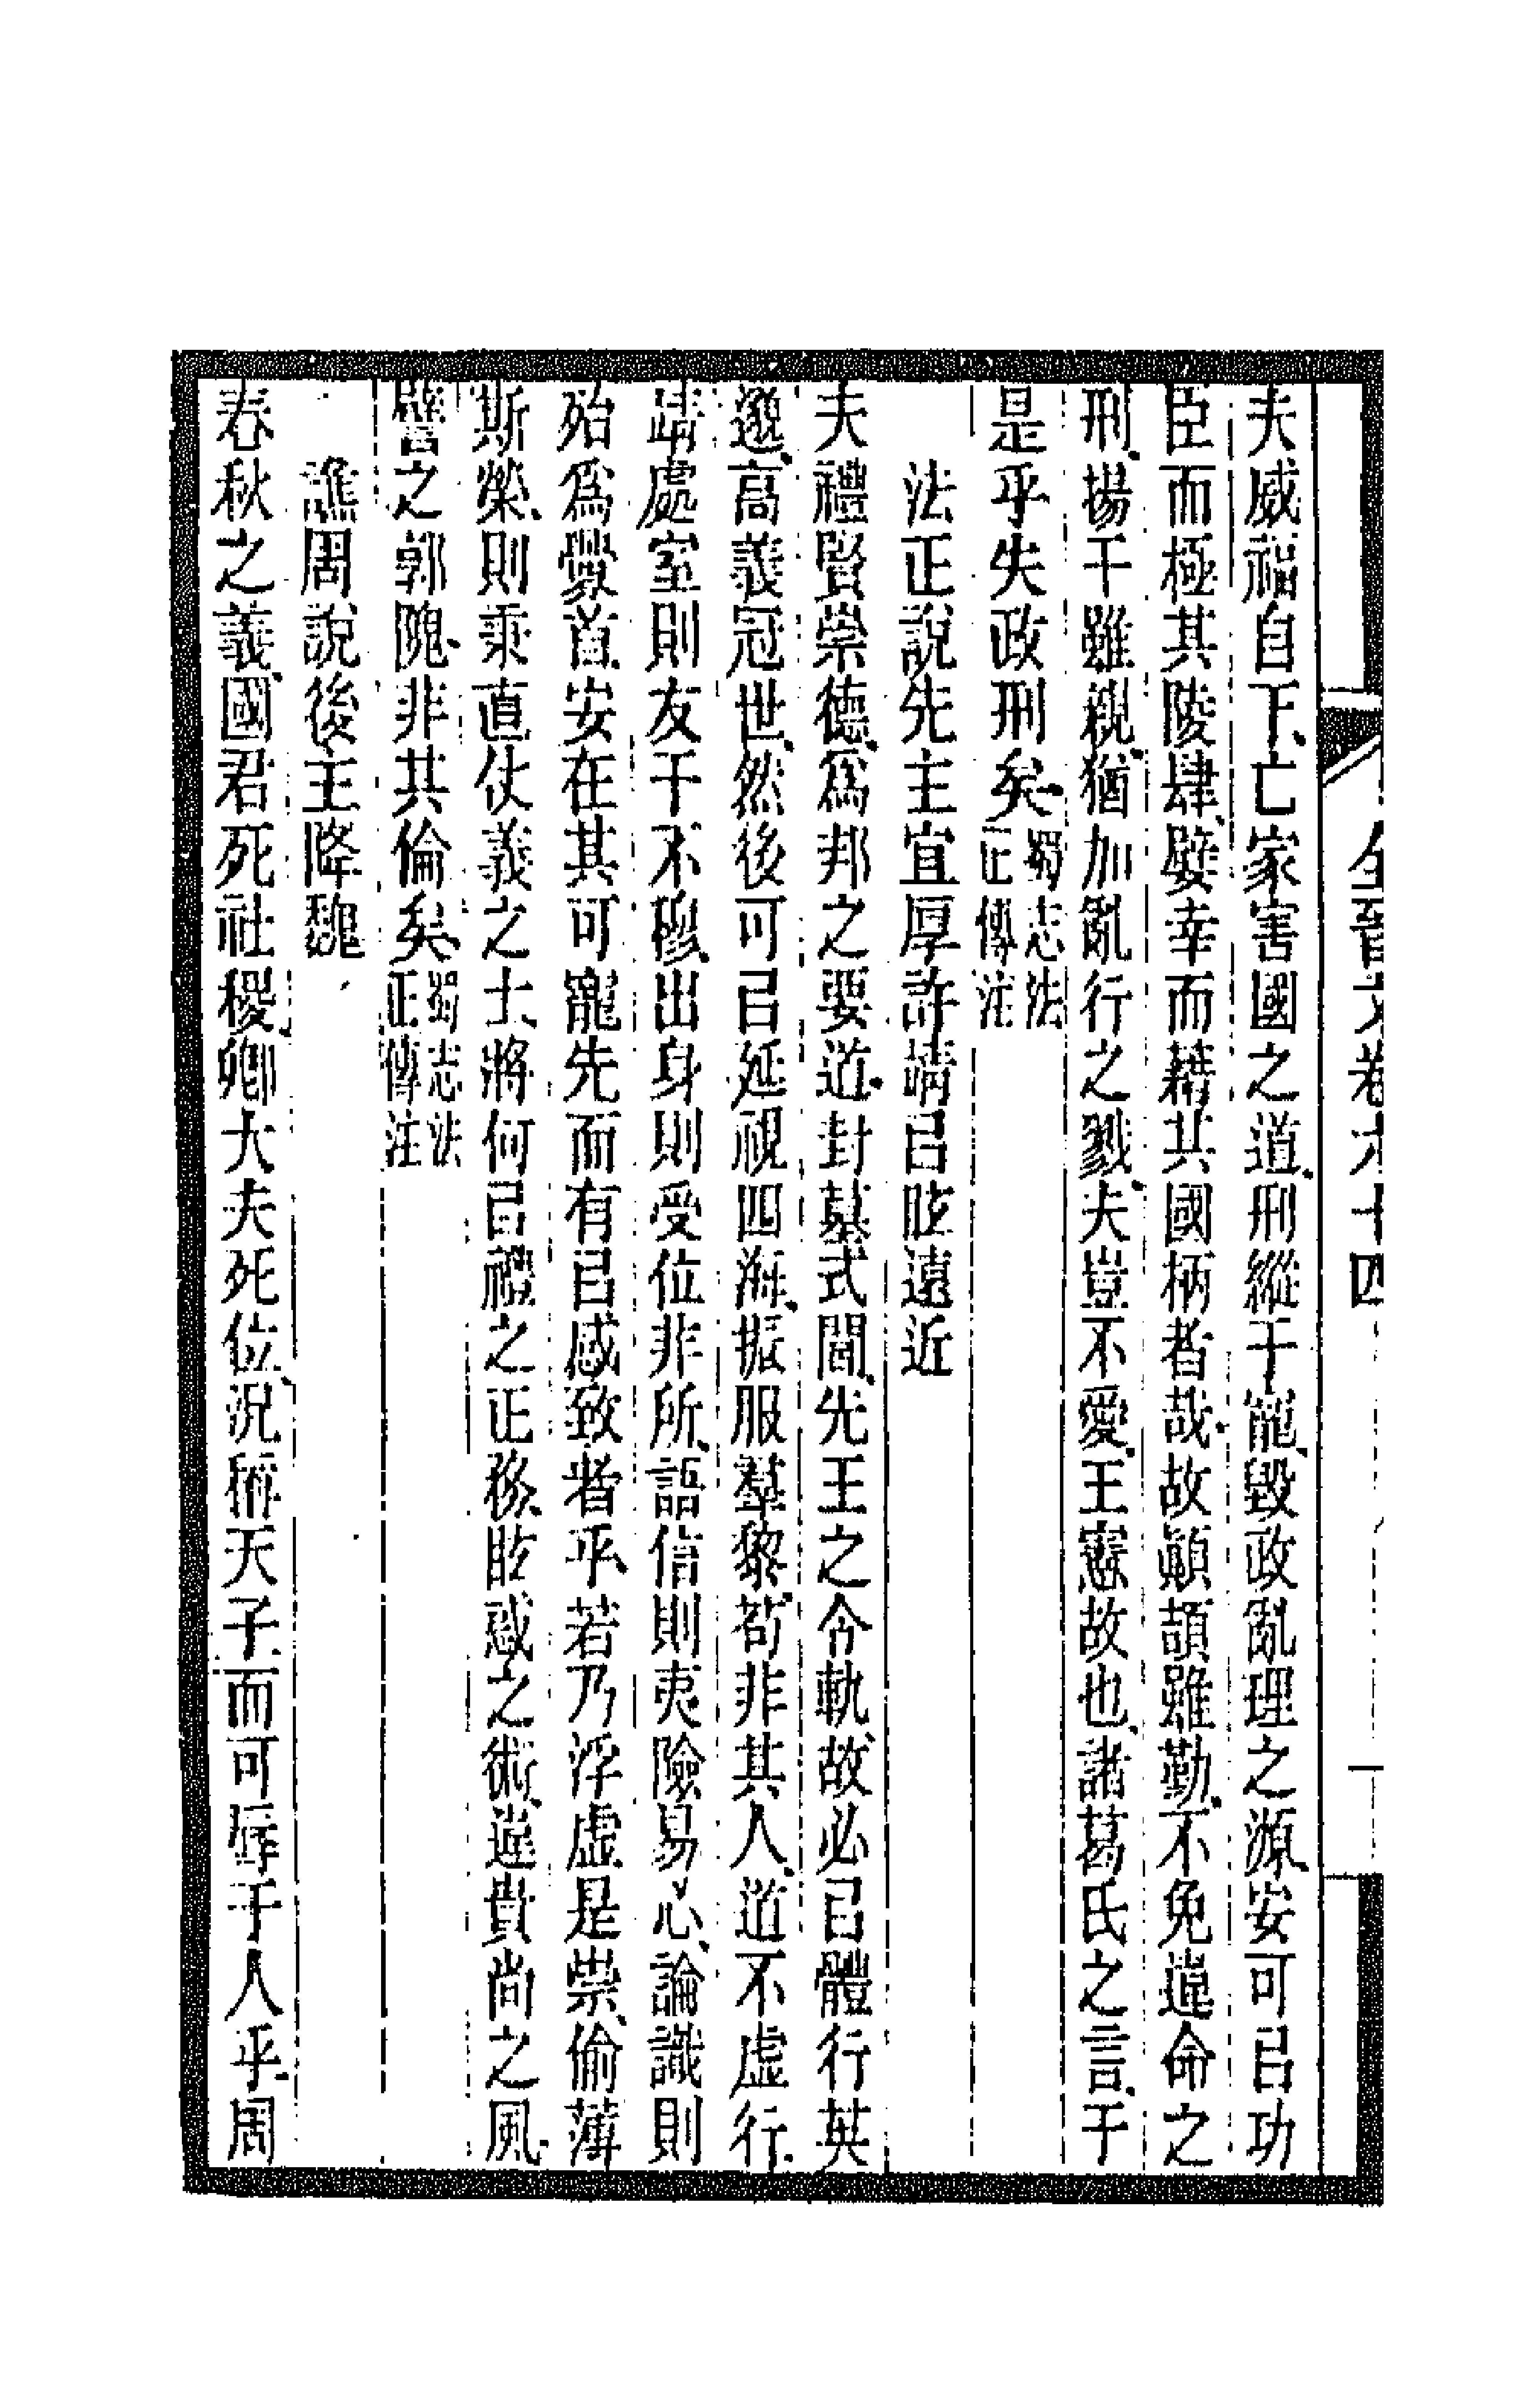 全晉文卷六十四
一
夫威福自下、亡家害國之道、刑縱于寵、毀政亂理之源、安可㠯功
臣而極其陵肆、嬖幸而藉其國柄者哉、故顚頡雖勤、不免違命之
刑、揚干雖親、猶加亂行之戮、夫豈不愛、王憲故也、諸葛氏之言、于
是乎失政刑矣、蜀志法正傳注
法正說先主宜厚許靖㠯眩遠近
夫禮賢崇德、爲邦之要道、封墓式閭、先王之令軌、故必㠯體行英
邈、高義冠世、然後可㠯延視四海、振服羣黎、苟非其人、道不虛行、
靖處室則友于不穆、出身則受位非所、語信則夷險易心、論識則
殆爲釁首、安在其可寵先而有㠯感致者乎、若乃浮虛是崇、偷薄
斯榮、則秉直仗義之士、將何㠯禮之、正務眩惑之術、違貴尚之風、
譬之郭隗、非其倫矣、蜀志法正傳注
譙周說後主降魏
春秋之義、國君死社稷、卿大夫死位、況稱天子而可辱于人乎、周